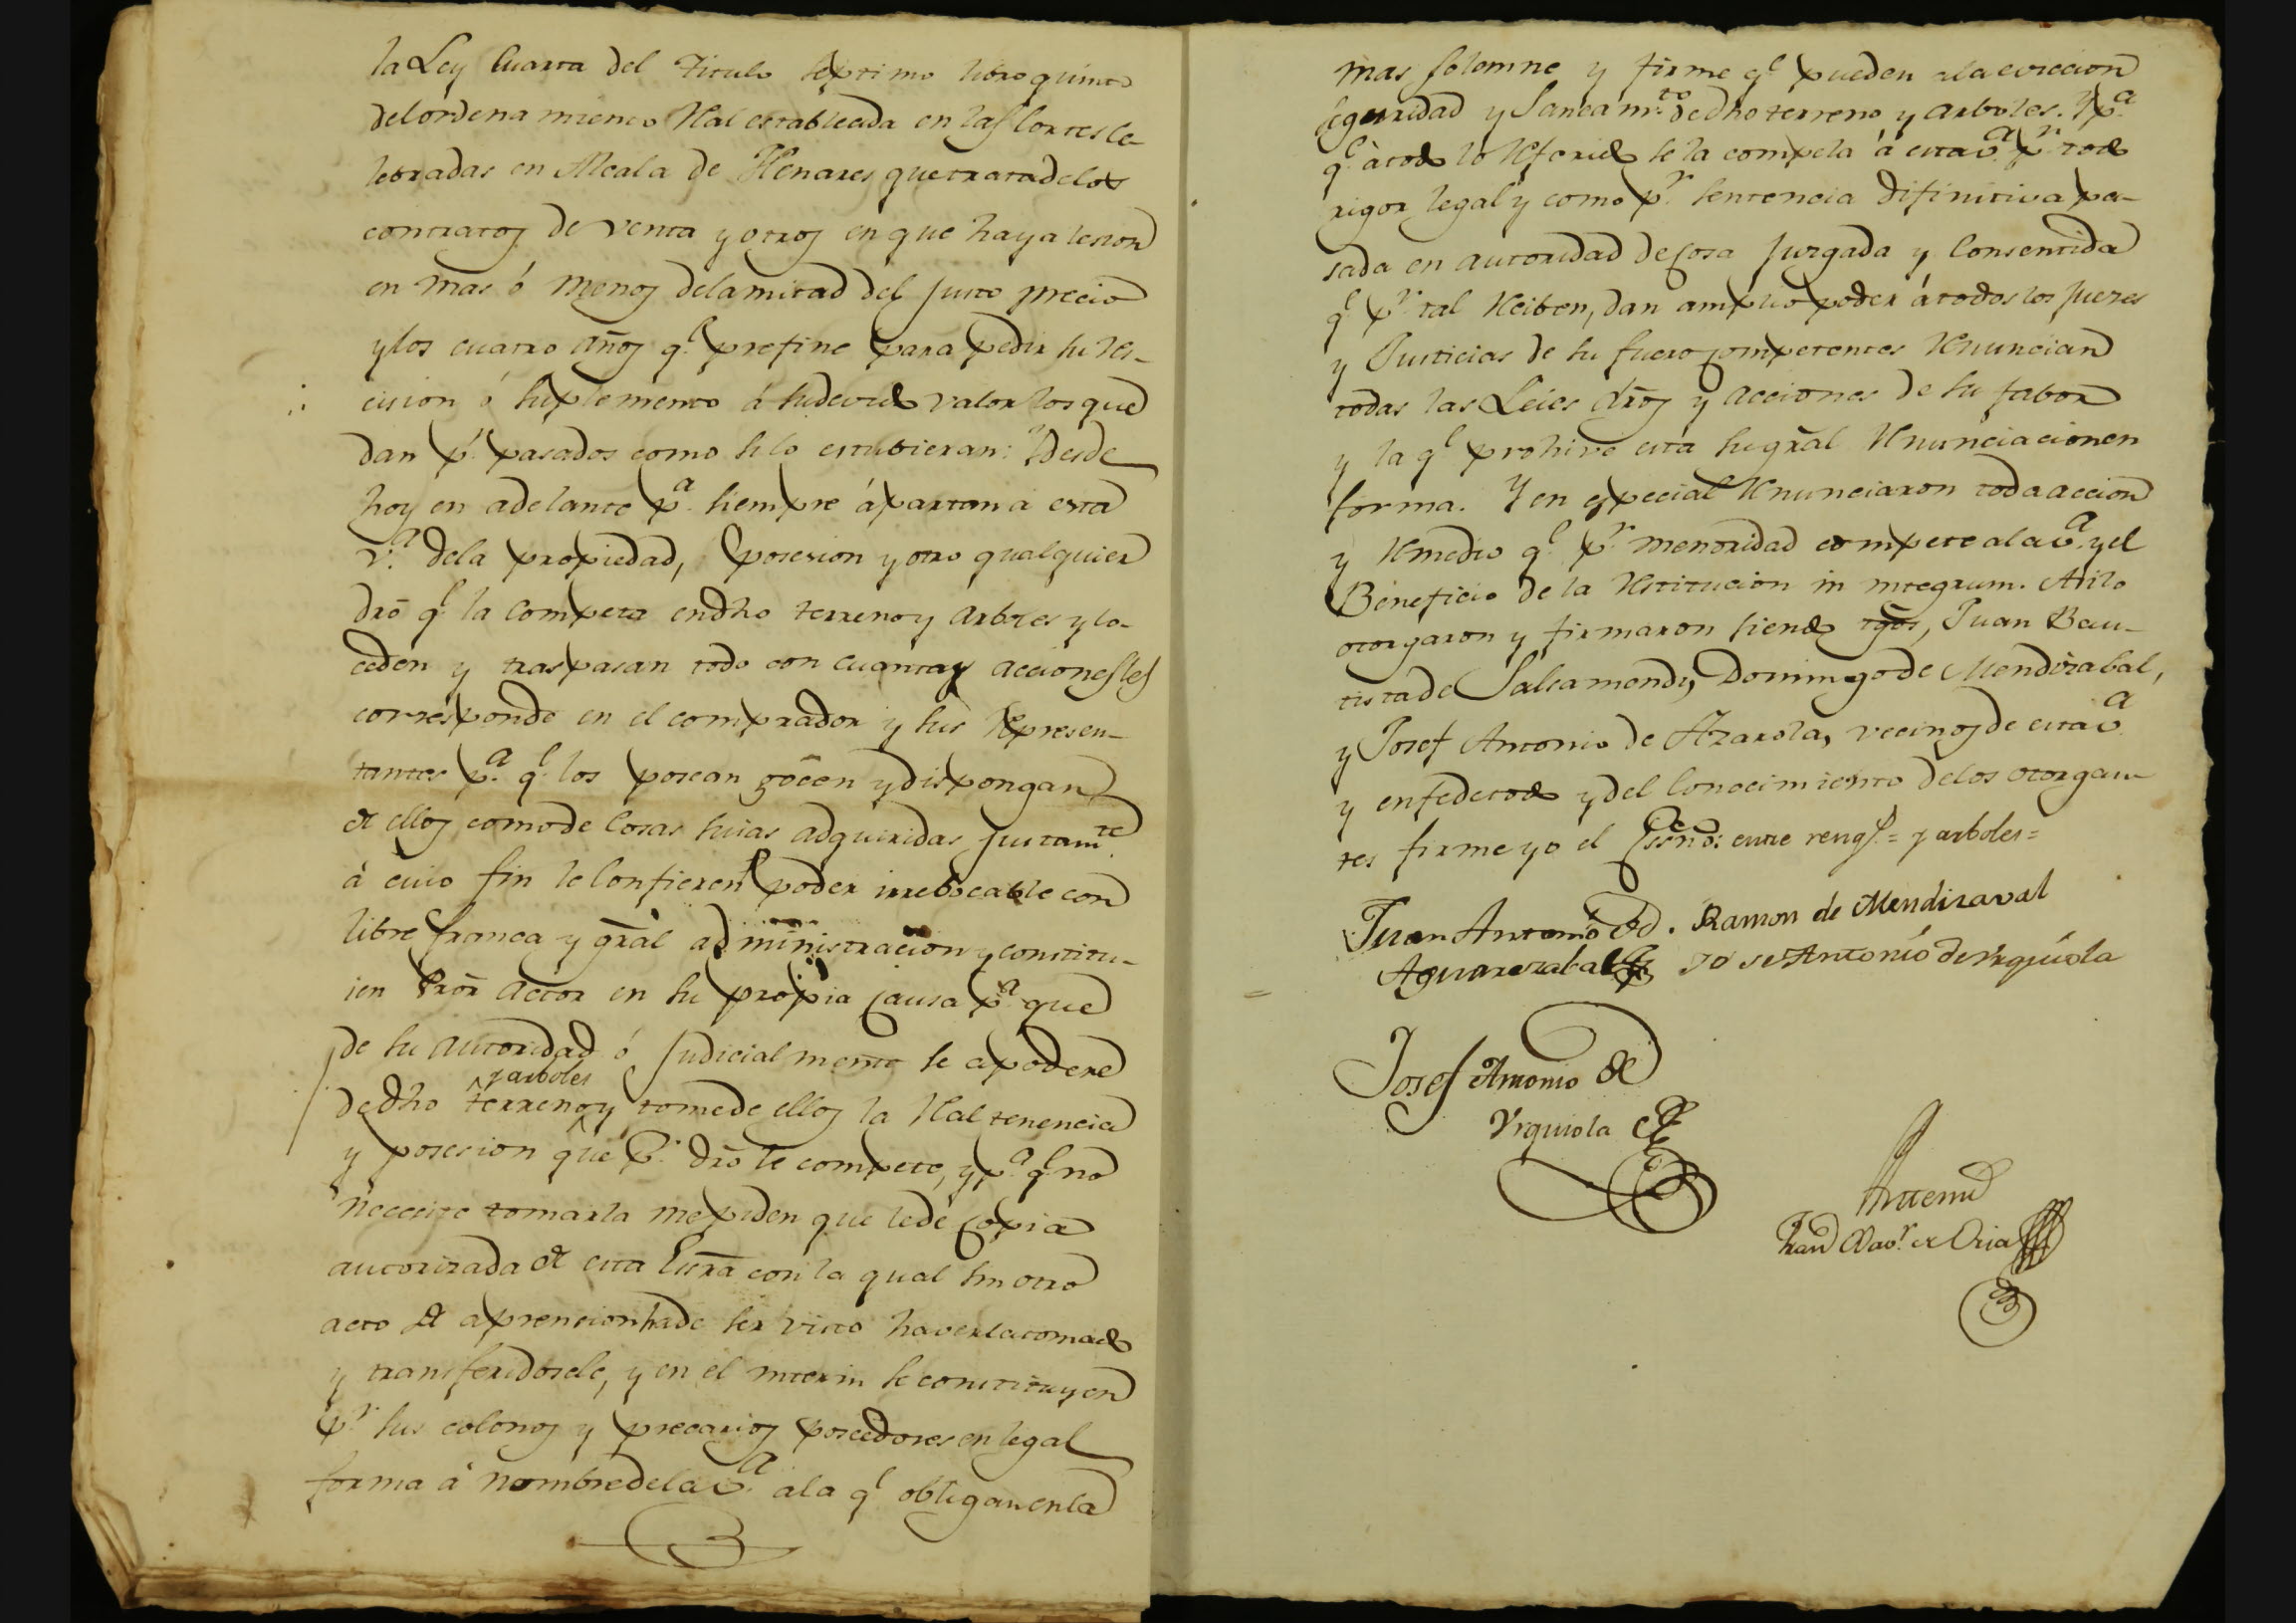 la Ley Cuarta del Titulo septimo libro quinto
del ordenamiento Rl establecida en las Cortes ce-
lebradas en Alcala de Henares que trata de los
contratos de venta y otros en que haya lesion
en mas ó menos de la mitad del justo precio
y los cuatro añs q.e prefine para pedir su res-
cision ó suplemento á su devido valor los que
dan p.r pasados como si lo estubieran: Desde
hoy en adelante p.a siempre ápartan á esta
V.a de la propiedad, posesion y otro qualquier
dro q.e la competa en dho terreno y arboles y lo
ceden y traspasan todo con cuantas acciones les
corresponde en el comprador y sus represen-
tantes p.a q.e los posean gocen y dispongan
de ellos como de cosas suias adquiridas justam.te
à cuio fin le confieren poder irrebocable con
libre franca y gral administracion y constitu-
ien Pror actor en su propia causa p.a que
de su autoridad ó judicialmente se apodere
y arboles
de dho terreno y tome de ellos la Rl tenencia
y posesion que p.r dro le compete, y p.a q.e no
necesite tomarla me piden que le dé copia
autorizada de esta Escra con la qual sin otro
acto de aprension ha de ser visto haverla tomado
y transferidosele, y en el interin se constituyen
p.r sus colonos y precarios poseedores en legal
forma á nombre de la V.a a la q.e obligan en la
mas solemne y firme q.e pueden a la eviccion
seguridad y saneam.to de dho terreno y arboles. Y p.a
q.e à todo lo referido se la compela á esta V.a p.r todo
rigor legal y como p.r sentencia difinitiva pa-
sada en autoridad de cosa juzgada y consentida
q.e p.r tal reciben, dan amplio poder á todos los jueces
y Justicias de su fuero competentes renuncian
todas las Leies dros y acciones de su fabor
y la q.e prohive esta su gral renunciacion en
forma. Y en especial renunciaron toda accion
y remedio q.e p.r menoridad compete a la V.a y el
Beneficio de la restitucion in integrum. Asi lo
otorgaron y firmaron siendo tgos, Juan Bau-
tista de Salsamendi, Domingo de Mendizabal,
y Josef Antonio de Azarola, vecinos de esta V.a
y en fe de todo y del conocimiento de los otorgan-
tes firme yo el Essno: entre rengs = y arboles =
Juan Antonio de . Ramon de Mendizaval
Aguirrezabal Jose Antonio de Vrquiola
Josef Antonio de
Vrquiola
Antemi